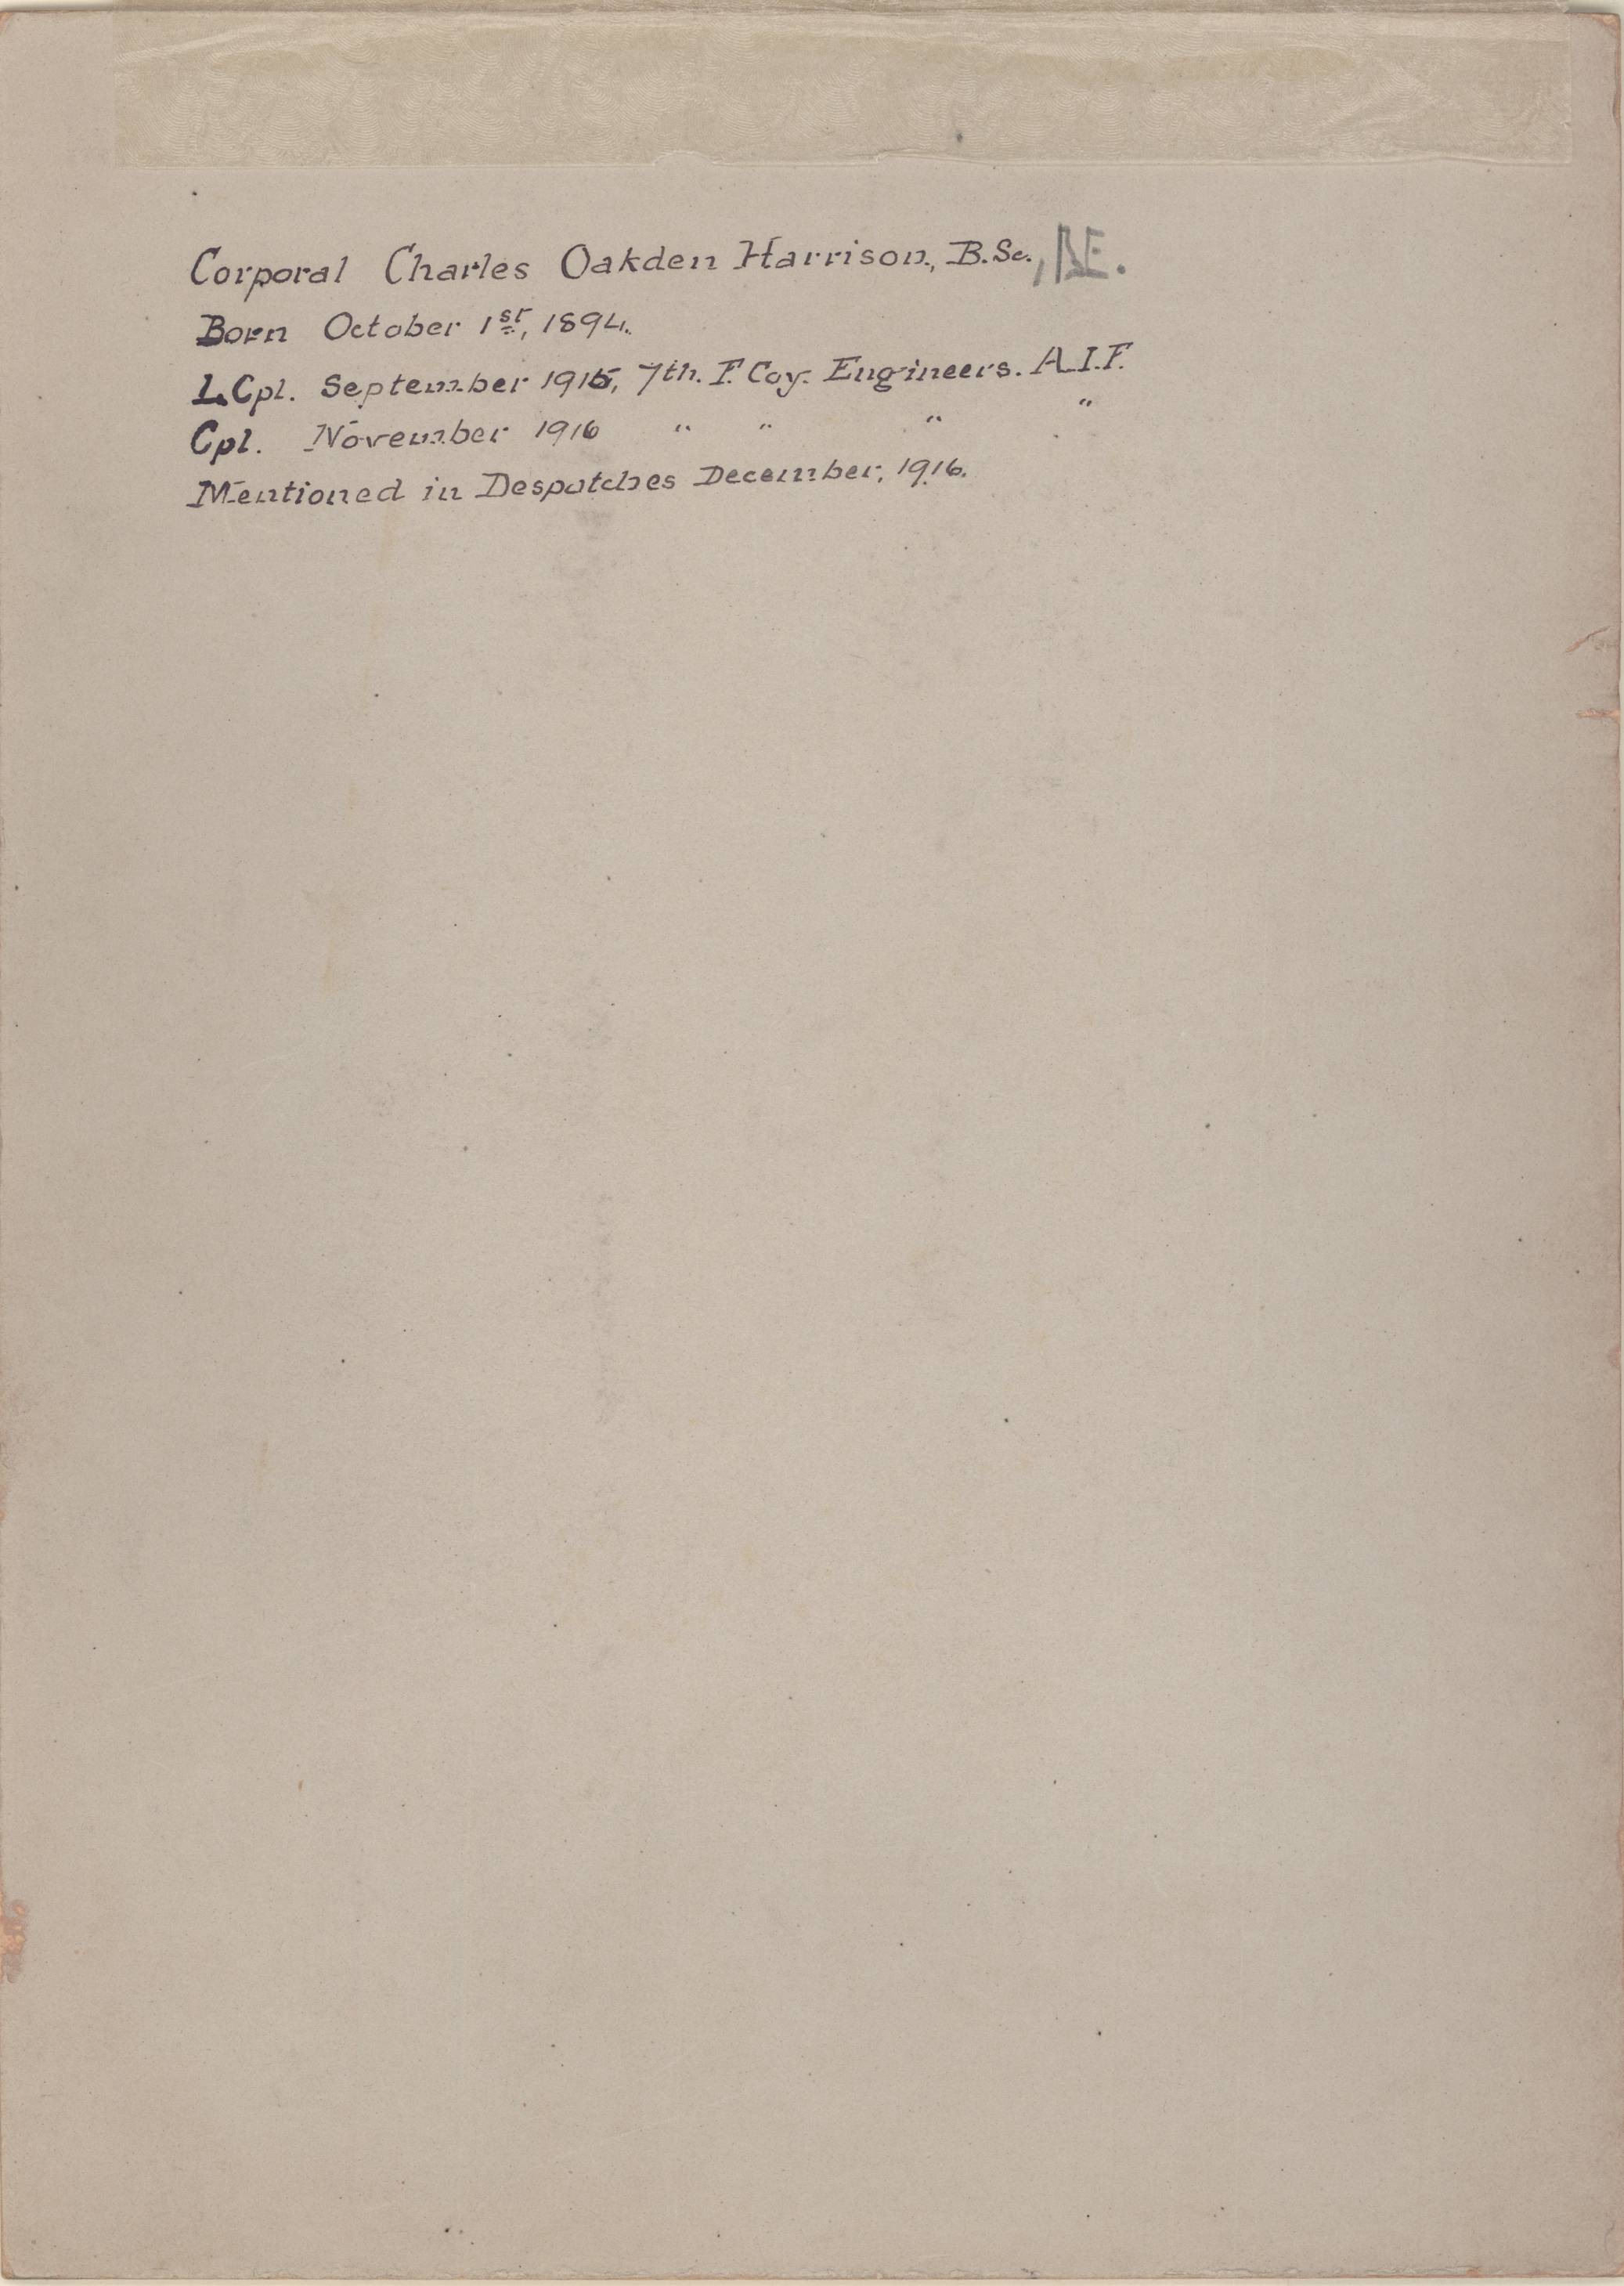 Corporal Charles Oakden Harrison., B.Sc., B.E.
Born October 1st, 1894.
L.Cpl. September 1915, 7th. F. Coy. Engineers. A.I.F.
Cpl. November 1916 " " " "
Mentioned in Despatches December, 1916.